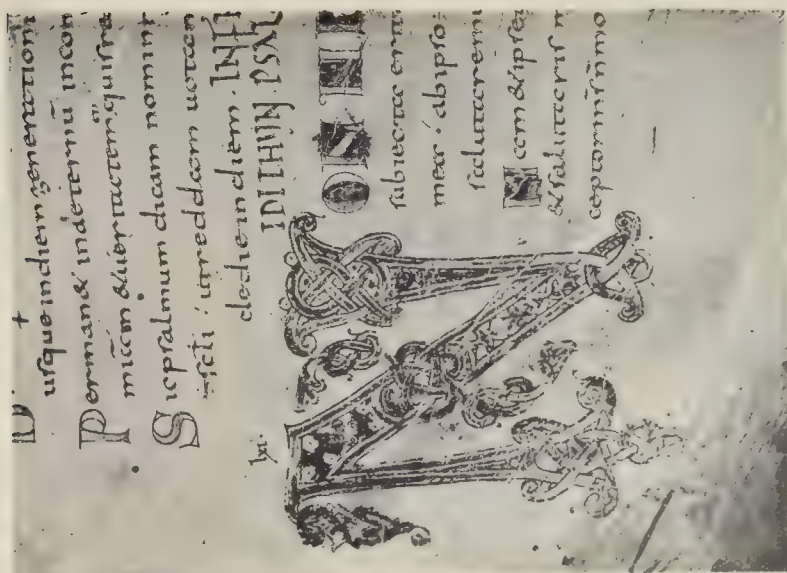 usque indiem generationi
Perman& indeternū incon
micām & ueritatem quis re
Sic psalmum dicam nomini
scli · ut reddam uotam
de die in diem · IN FI
IDITHUN · PSAL
lxi
N
subiecta erit
mea · ab ipso
salutare m
& ipse
& salutaris m